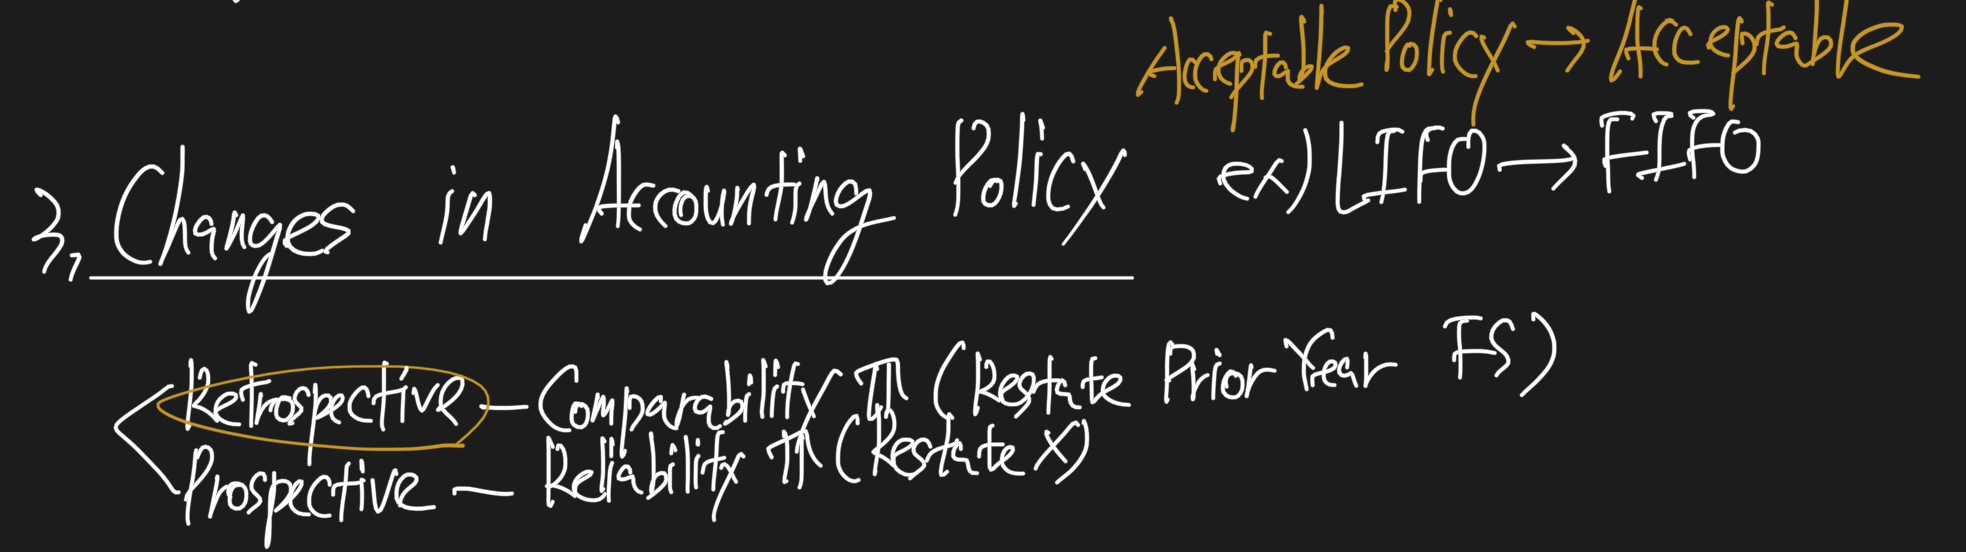 Acceptable Policy → Acceptable
3. Changes in Accounting Policy ex) LIFO → FIFO
Retrospective — Comparability ⇈ (Restate Prior Year FS)
Prospective — Reliability ⇈ (Restate X)